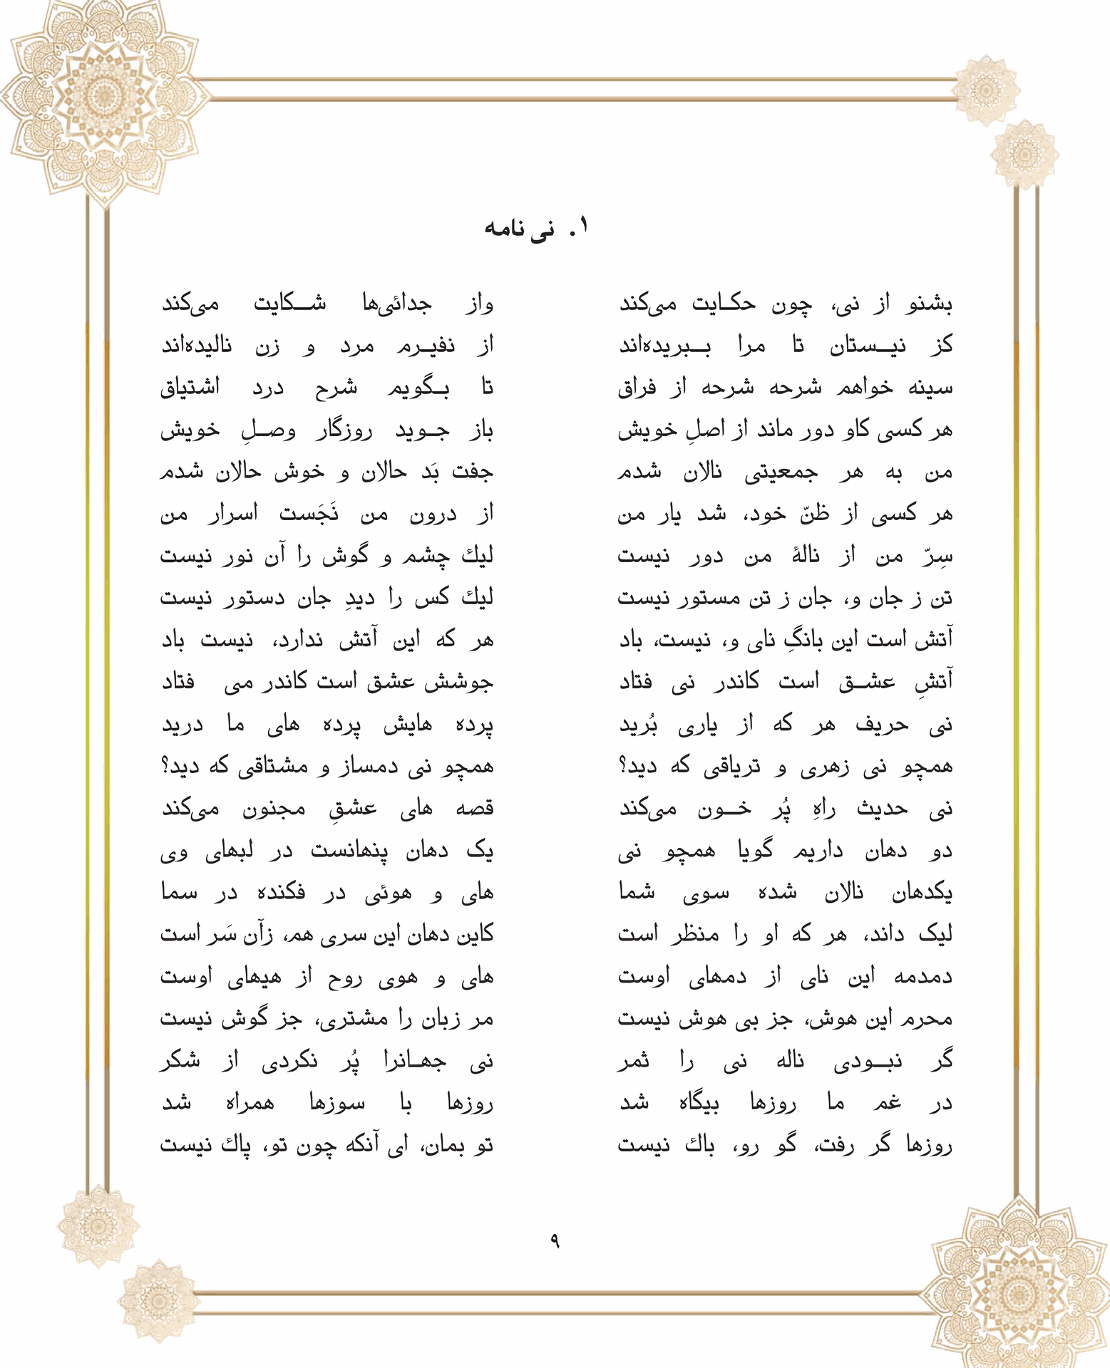 ۱. نی نامه
بشنو از نی، چون حکایت می‌کند واز جدائی‌ها شکایت می‌کند
کز نیستان تا مرا ببریده‌اند از نفیرم مرد و زن نالیده‌اند
سینه خواهم شرحه شرحه از فراق تا بگویم شرح درد اشتیاق
هر کسی کاو دور ماند از اصلِ خویش باز جوید روزگار وصلِ خویش
من به هر جمعیتی نالان شدم جفت بَد حالان و خوش حالان شدم
هر کسی از ظنّ خود، شد یار من از درون من نَجَست اسرار من
سِرّ من از نالهٔ من دور نیست لیك چشم و گوش را آن نور نیست
تن ز جان و، جان ز تن مستور نیست لیك کس را دیدِ جان دستور نیست
آتش است این بانگِ نای و، نیست، باد هر که این آتش ندارد، نیست باد
آتشِ عشق است کاندر نی فتاد جوشش عشق است کاندر می فتاد
نی حریف هر که از یاری بُرید پرده هایش پرده های ما درید
همچو نی زهری و تریاقی که دید؟ همچو نی دمساز و مشتاقی که دید؟
نی حدیث راهِ پُر خون می‌کند قصه های عشقِ مجنون می‌کند
دو دهان داریم گویا همچو نی یک دهان پنهانست در لبهای وی
یکدهان نالان شده سوی شما های و هوئی در فکنده در سما
لیک داند، هر که او را منظر است کاین دهان این سری هم، زآن سَر است
دمدمه این نای از دمهای اوست های و هوی روح از هیهای اوست
محرم این هوش، جز بی هوش نیست مر زبان را مشتری، جز گوش نیست
گر نبودی ناله نی را ثمر نی جهانرا پُر نکردی از شکر
در غم ما روزها بیگاه شد روزها با سوزها همراه شد
روزها گر رفت، گو رو، باك نیست تو بمان، ای آنکه چون تو، پاك نیست
۹